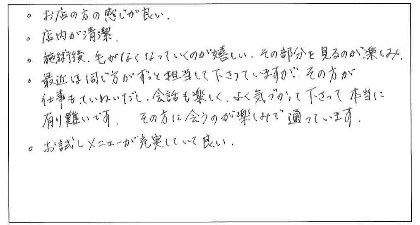 。お店の方の感じが良い.
。店内が清潔.
。施術後、毛がなくなっていくのが嬉しい. その部分を見るのが楽しみ.
。最近は同じ方がずっと担当して下さっていますが、その方が
仕事もていねいだし、会話も楽しく、よく気づかって下さって 本当に
有り難いです. その方に会うのが楽しみで通っています.
。お試しメニューが充実していて良い.